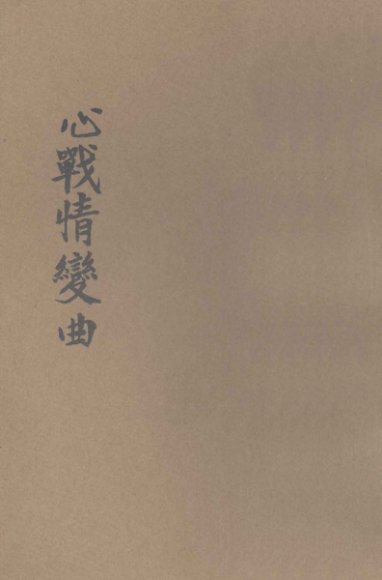 心戰情變曲